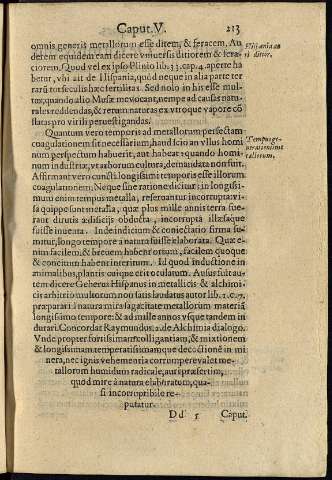 Caput. V. 213
omnis generis metallorum esse ditem, & feracem. Au
derem equidem eam dicere vniuersis ditiorem & fera
ciorem. Quod vel ex ipso Plinio lib. 33. cap. 4. aperte ha
betur, vbi ait de Hispania, quòd neque in alia parte ter
rarũ tot seculis hæc fertilitas. Sed nolo in his esse mul-
tus, quando alio Musæ me vocant, nempe ad causas natu
rales reddendas, & rerum naturas ex vtroque vapore cõ
flatas pro virili peruestigandas.
Quantum vero temporis ad metallorum perfectam
coagulationem sit necessarium, haud scio an vllus homi
num perspectum habuerit, aut habeat: quando homi-
num industria, vt arborum cultura, demũ data non sunt.
Affirmant vero cuncti longissimi temporis esse illorum
coagulationem. Neque sine ratione dicitur: in longissi-
mum enim tempus metalla, reseruantur incorrupta: vi-
sa quippe sunt metalla, quæ plus mille annis terra fue-
rant dirutis ædificijs obducta, incorrupta illæsaque
fuisse inuenta. Inde indicium & coniectatio firma su-
mitur, longo tempore à natura fuisse elaborata. Quæ e-
nim facilem, & breuem habent ortum, facilem quoque
& concitum habent interitum. Id quod inductione in
animalibus, plantis cuique erit oculatum. Ausus fuit au-
tem dicere Geberus Hispanus in metallicis & alchimi-
cis arbitrio multorum non satis laudatus autor lib. 1. c. 7.
præparari à natura mira sagacitate metallorum materiã
longissimo tempore: & ad mille annos vsque tandem in
durari. Concordat Raymundus. 2. de Alchimia dialogo.
Vnde propter fortissimam colligantiam, & mixtionem
& longissimam temperatissimamque decoctionẽ in mi
nera, nec ignis vehementia corrumpere valet me-
tallorum humidum radicale, auri præsertim,
quod mire à natura elaboratum, qua-
si incorruptibile re-
putatur.
Dd 5 Caput.
Hispania cũ
ti ditior.
Tempus ge-
nerationis me
tallorum.